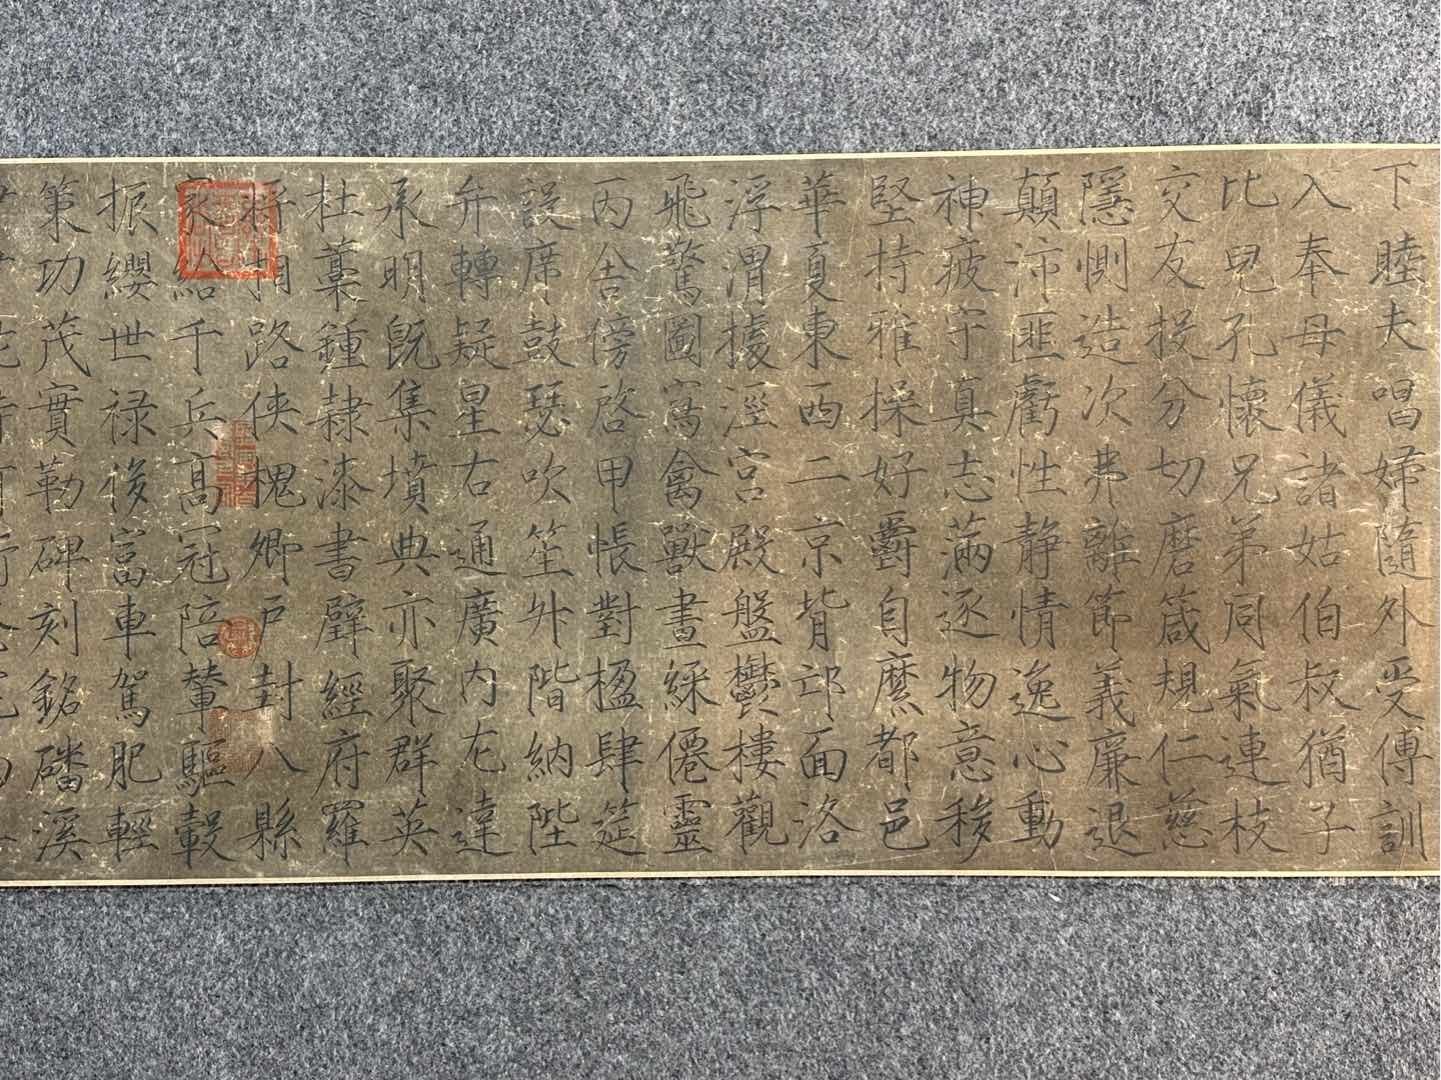 下睦夫唱婦隨外受傅訓
入奉母儀諸姑伯叔猶子
比兒孔懷兄弟同氣連枝
交友投分切磨箴規仁慈
隱惻造次弗離節義廉退
顛沛匪虧性静情逸心動
神疲守真志滿逐物意移
堅持雅操好爵自縻都邑
華夏東西二京背邙面洛
浮渭據涇宮殿盤鬱樓觀
飛驚圖寫禽獸畫綵僊靈
丙舍傍啓甲帳對楹肆筵
設席鼓瑟吹笙升階納陛
弁轉疑星右通廣內左達
承明既集墳典亦聚群英
杜稾鍾隸漆書壁經府羅
將相路俠槐卿戶封八縣
家給千兵高冠陪輦驅轂
振纓世禄侈富車駕肥輕
策功茂實勒碑刻銘磻溪